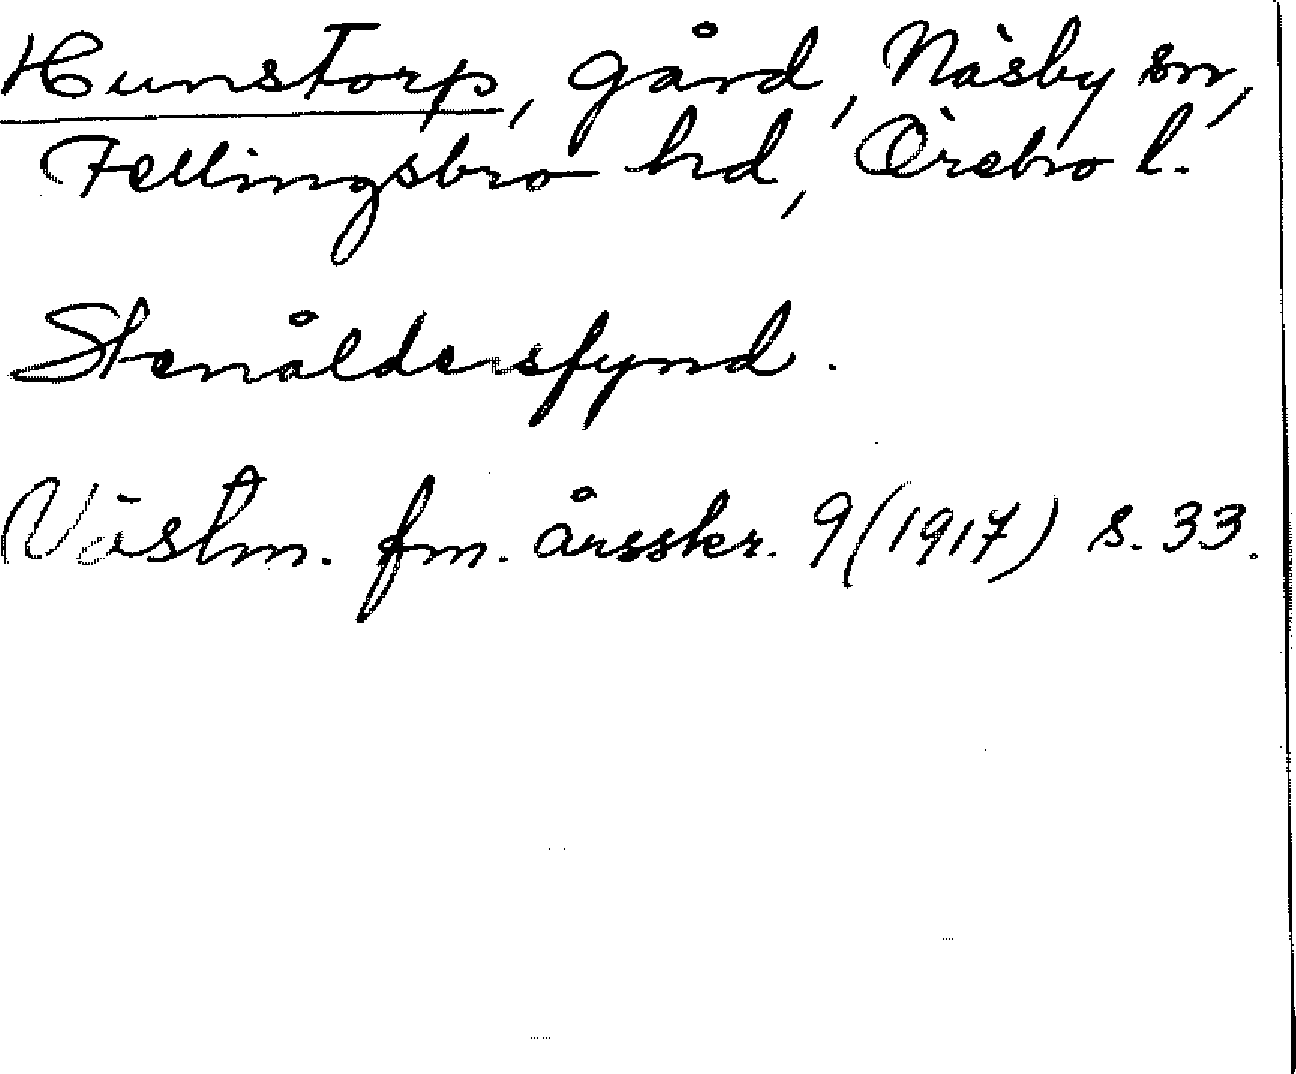 Hunstorp, gård, Näsby sn,
Fellingsbro hd, Örebro l.
Stenåldersfynd.
Västm. fm. årsskr. 9 (1917) s. 33.